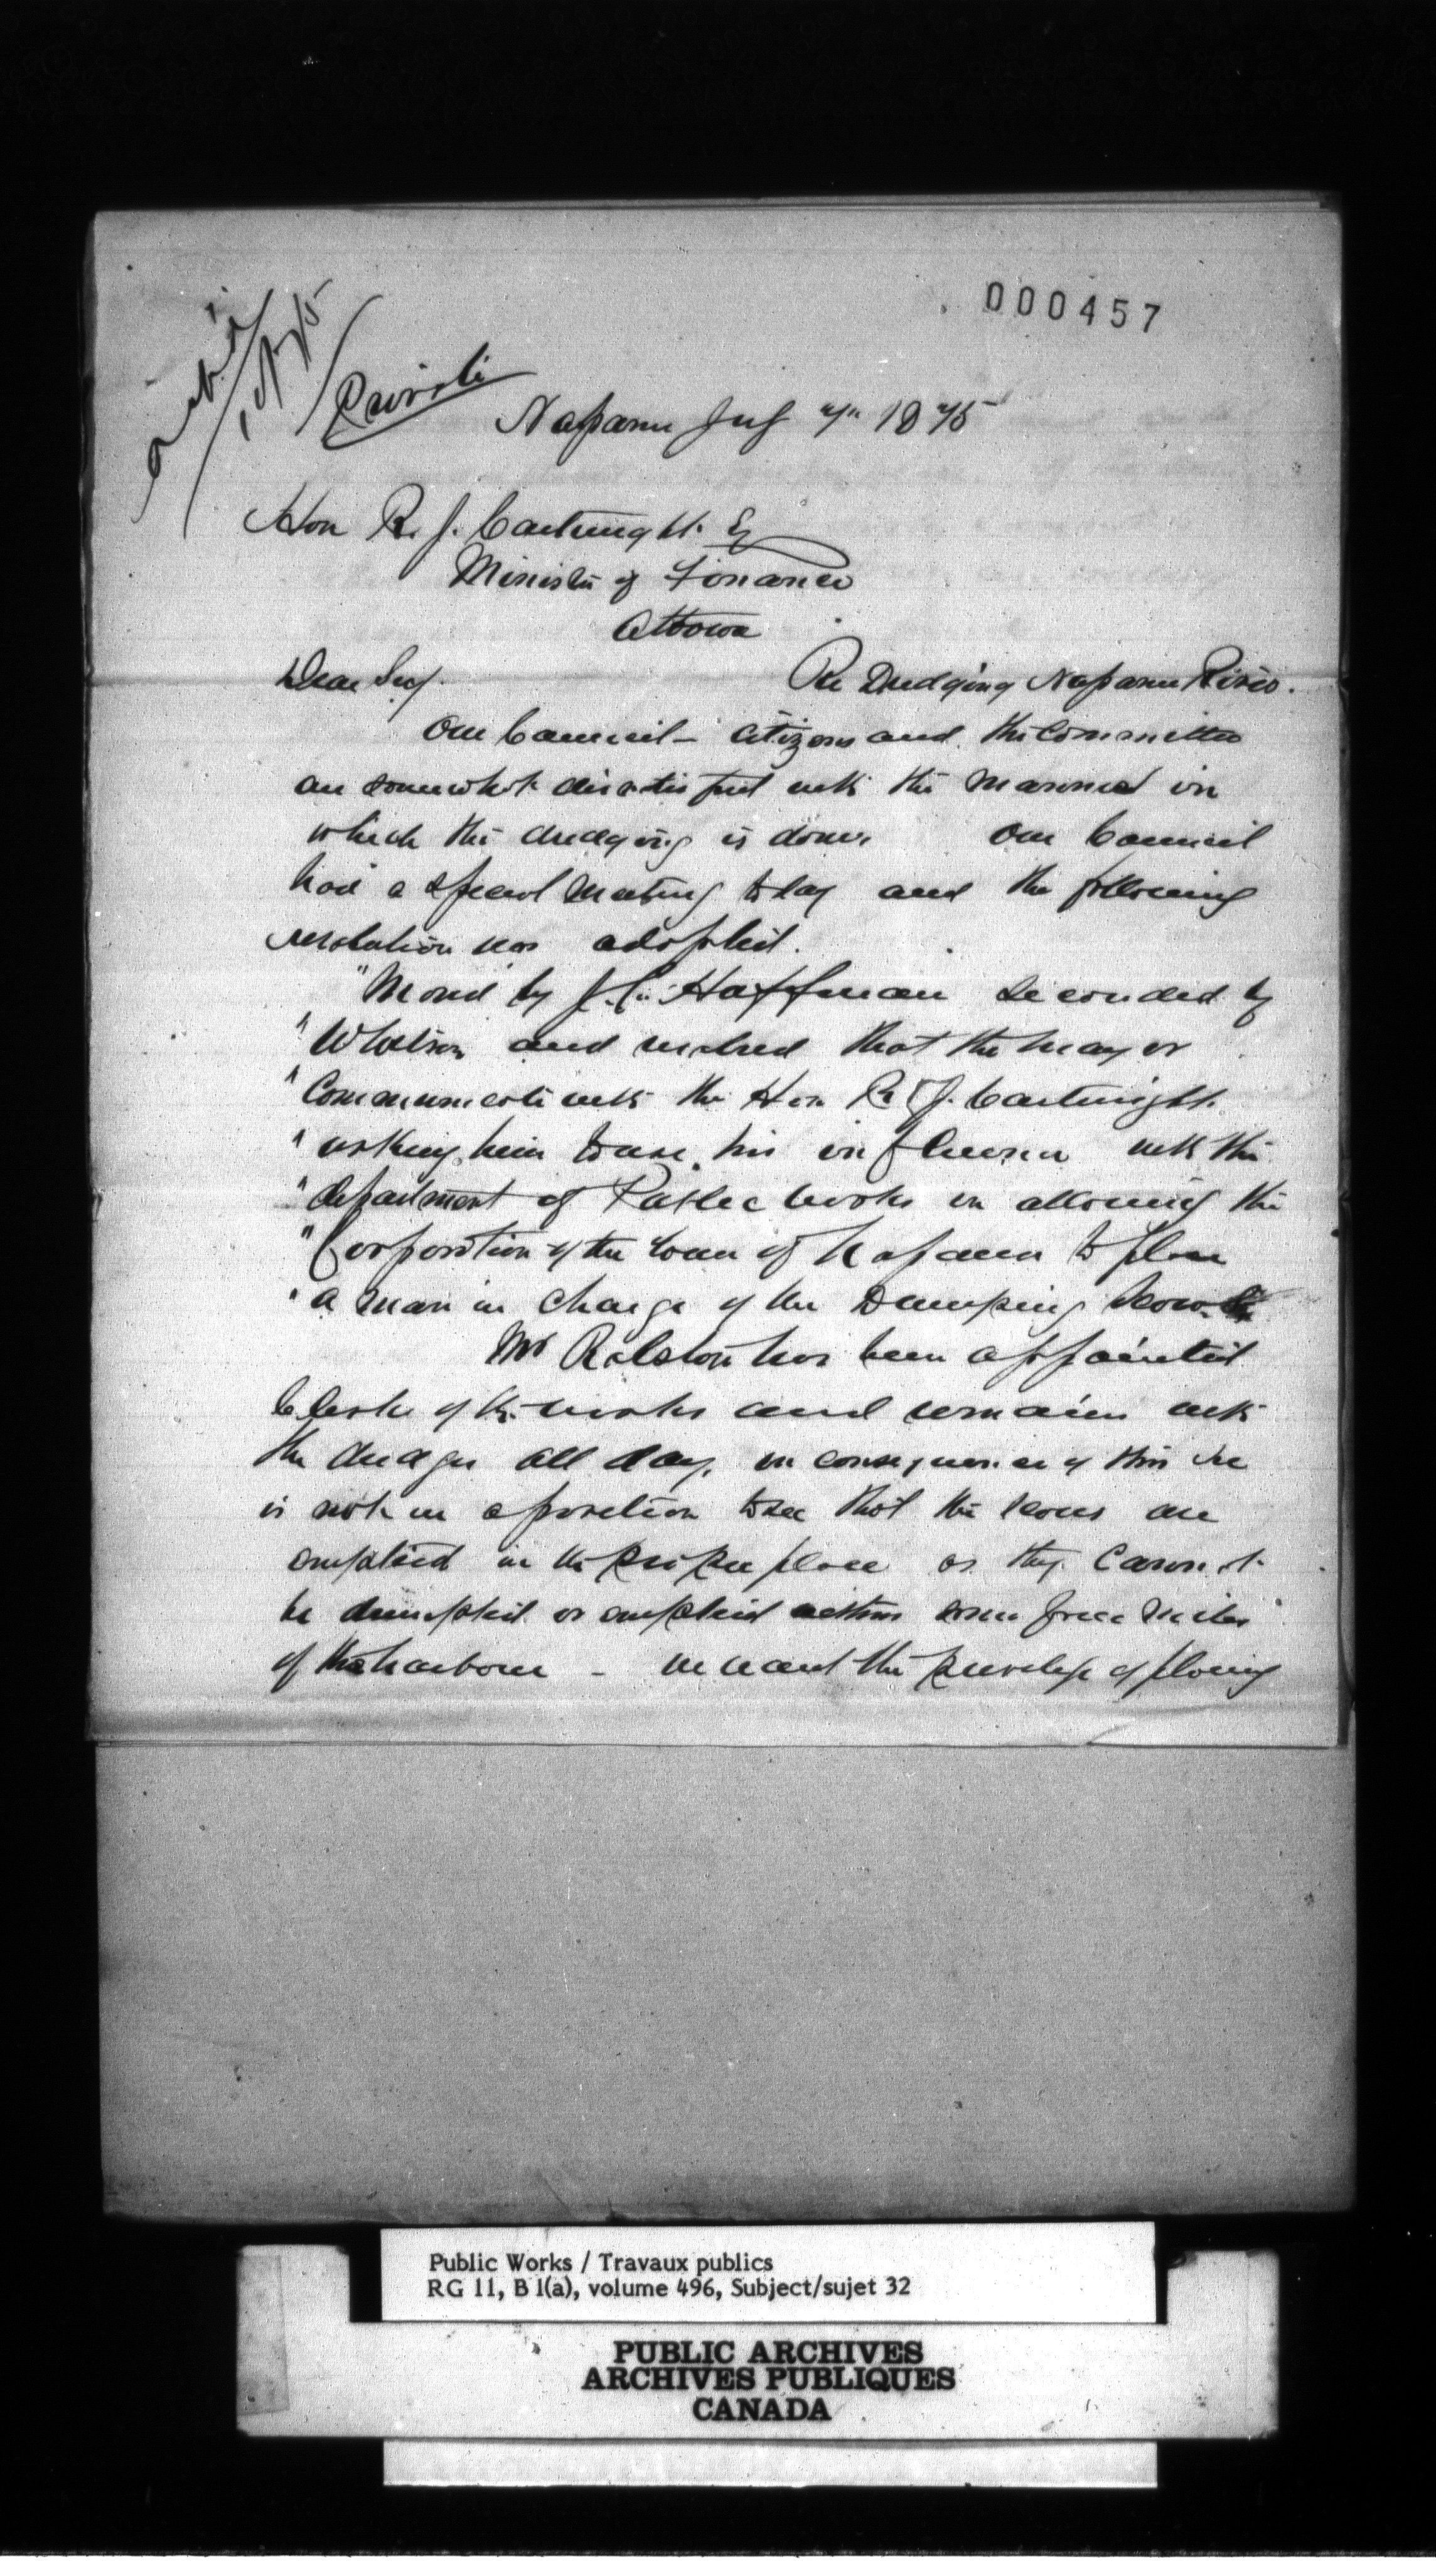 000457
Private
Napanee July 7th 1875
Hon R. J. Cartwright Esq
Minister of Finance
Ottawa
Dear Sir Re Dredging Napanee River.
Our Council - Citizens and the Committee
are somewhat dissatisfied with the manner in
which the dredging is done. Our Council
had a special meeting to day and the following
resolution was adopted.
"Moved by J. C. Huffman seconded by
" and resolved that the Mayor
"Communicate with the Hon R. J. Cartwright
"asking him to use his influence with the
"department of Public Works in allowing the
"Corporation of the town of Napanee to place
"a man in charge of the Dumping Scow
Mr Ralston has been appointed
Clerk of the works and remains with
the dredge all day, in consequence of this he
is not in a position to see that the scows are
emptied in the proper place as they cannot
be dumped or emptied within some miles
of the harbour - we want the privilege of placing
Public Works / Travaux publics
RG 11, B 1(a), volume 496, Subject/sujet 32
PUBLIC ARCHIVES
ARCHIVES PUBLIQUES
CANADA